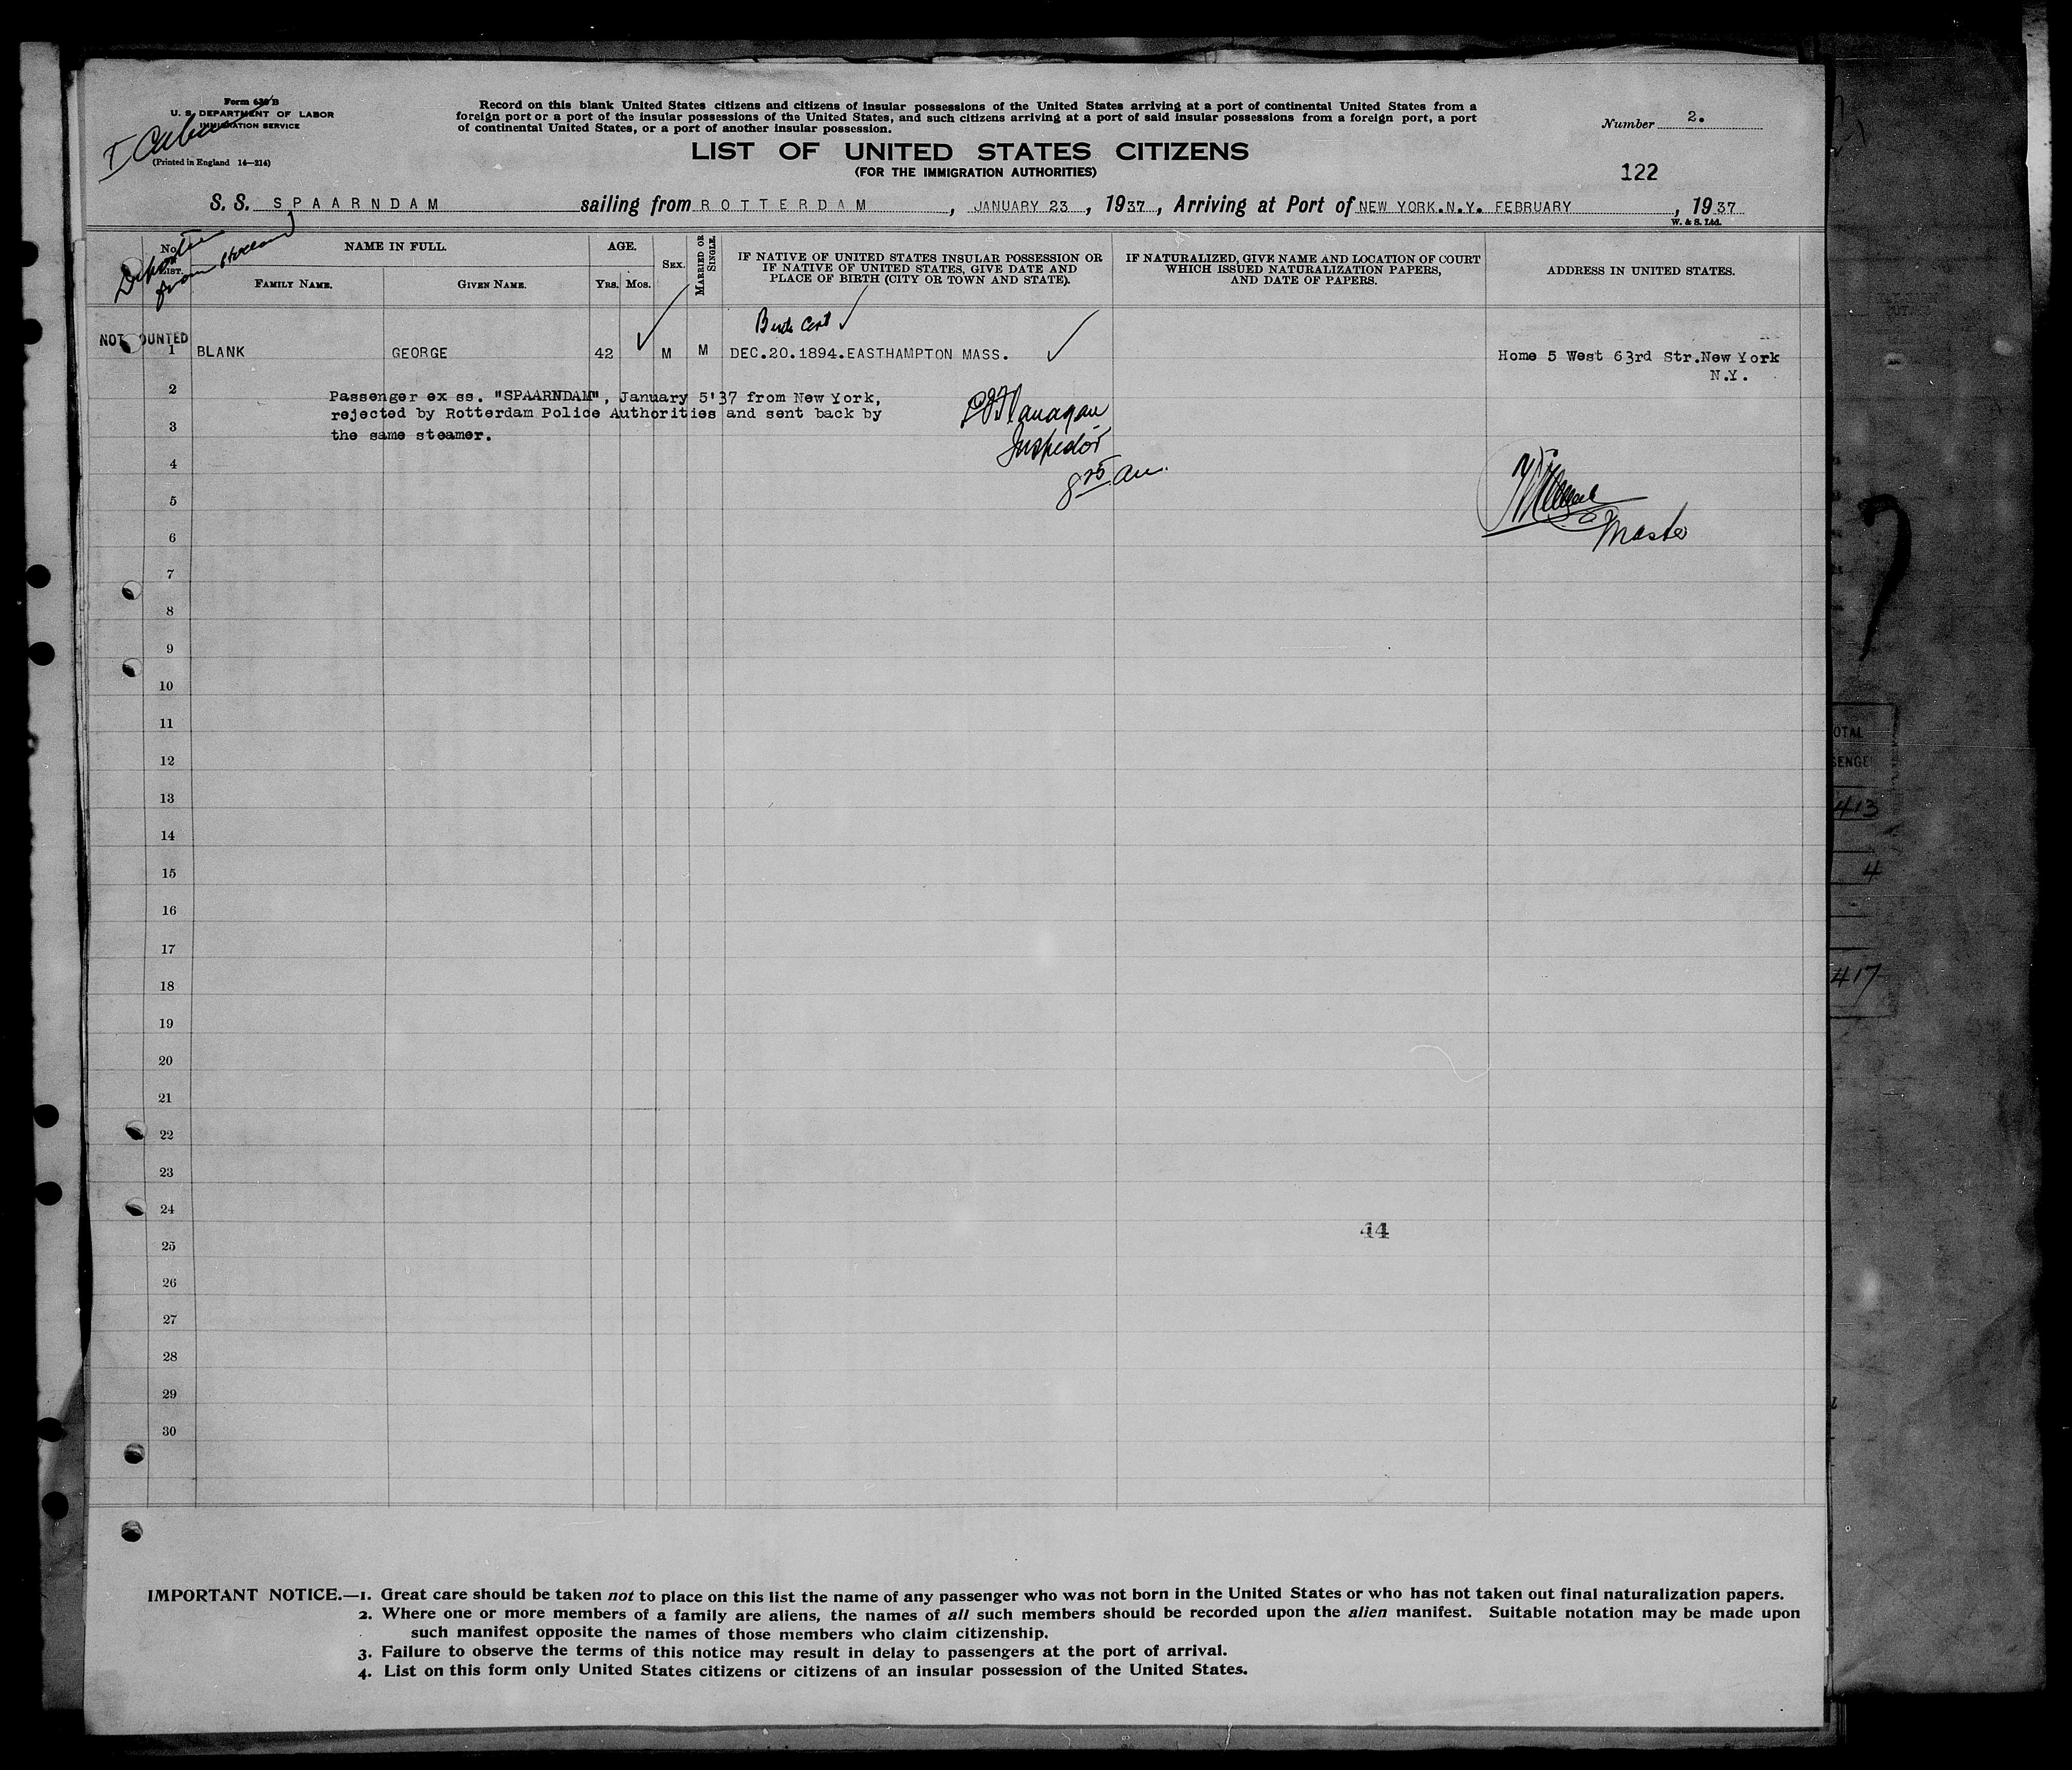 Form 630 B
U. S. DEPARTMENT OF LABOR
IMMIGRATION SERVICE
(Printed in England 14—214)
T Cabin
Record on this blank United States citizens and citizens of insular possessions of the United States arriving at a port of continental United States from a
foreign port or a port of the insular possessions of the United States, and such citizens arriving at a port of said insular possessions from a foreign port, a port
of continental United States, or a port of another insular possession.
Number 2.
LIST OF UNITED STATES CITIZENS
(FOR THE IMMIGRATION AUTHORITIES)
122
S. S. SPAARNDAM sailing from ROTTERDAM, JANUARY 23, 1937, Arriving at Port of NEW YORK.N.Y. FEBRUARY, 1937
W. & S. Ltd.
from Holland
No.
LIST.
NAME IN FULL.
FAMILY NAME.
GIVEN NAME.
AGE.
Yrs. Mos.
SEX.
MARRIED OR SINGLE.
IF NATIVE OF UNITED STATES INSULAR POSSESSION OR
IF NATIVE OF UNITED STATES, GIVE DATE AND
PLACE OF BIRTH (CITY OR TOWN AND STATE).
IF NATURALIZED, GIVE NAME AND LOCATION OF COURT
WHICH ISSUED NATURALIZATION PAPERS,
AND DATE OF PAPERS.
ADDRESS IN UNITED STATES.
Birth Cert ✓
NOT COUNTED
1 BLANK GEORGE 42 ✓ M M DEC.20.1894.EASTHAMPTON MASS. ✓ Home 5 West 63rd Str.New York
N.Y.
2
Passenger ex ss. "SPAARNDAM", January 5'37 from New York,
rejected by Rotterdam Police Authorities and sent back by
3
the same steamer.
Flanagan
Inspector
8 25 am.
Master
4
5
6
7
8
9
10
11
12
13
14
15
16
17
18
19
20
21
22
23
24
44
25
26
27
28
29
30
OTAL
SENGE
413
4
417
IMPORTANT NOTICE.—1. Great care should be taken not to place on this list the name of any passenger who was not born in the United States or who has not taken out final naturalization papers.
2. Where one or more members of a family are aliens, the names of all such members should be recorded upon the alien manifest. Suitable notation may be made upon
such manifest opposite the names of those members who claim citizenship.
3. Failure to observe the terms of this notice may result in delay to passengers at the port of arrival.
4. List on this form only United States citizens or citizens of an insular possession of the United States.